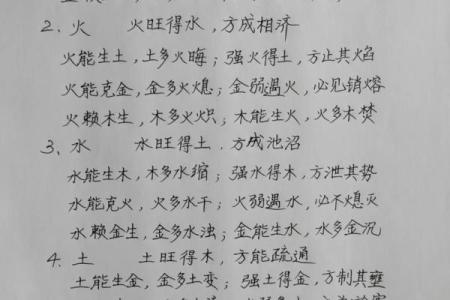 2、火 火旺得水,方成相济
火能生土,土多火晦;强火得土,方止其焰
火能克金,金多火熄;金弱遇火,必见销熔
火赖木生,木多火炽;木能生火,火多木焚
3、水 水旺得土.方成池沼
水能生木,木多水缩;强水得木,方泄其势
水能克火,火多水干;火弱遇水,必不熄灭
水赖金生,金多水浊;金能生水,水多金沉
4、土 土旺得木,方能疏通
土能生金,金多土变;强土得金,方制其壅